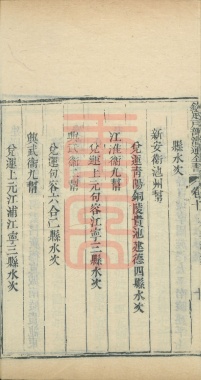 縣水次
新安衛池州幫
兌運青陽銅陵貴池建德四縣水次
江淮衛九幫
兌運上元句容江寧三縣水次
興武衛二幫
兌運句容六合二縣水次
興武衛九幫
兌運上元江浦江寧三縣水次